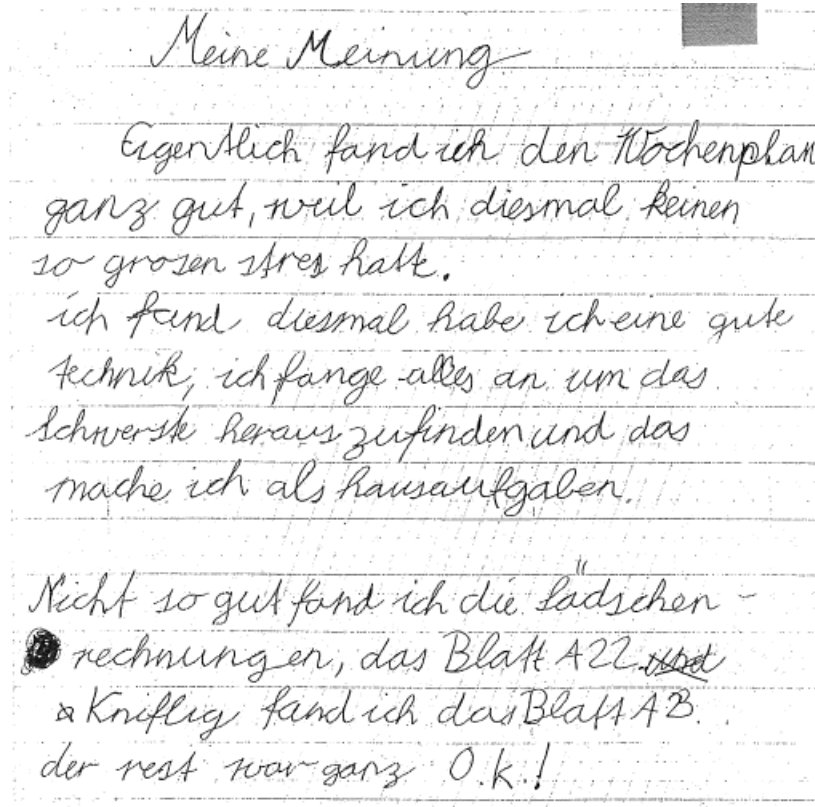 Meine Meinung
Eigentlich fand ich den Wochenplan
ganz gut, weil ich diesmal keinen
so grosen stres hatt.
ich fand diesmal habe ich eine gute
technik, ich fange alles an um das
schwerste heraus zufinden und das
mache ich als hausaufgaben.
Nicht so gut fand ich die Lädschen-
rechnungen, das Blatt A22
Kniflig fand ich das Blatt AB.
der rest war ganz O.k.!